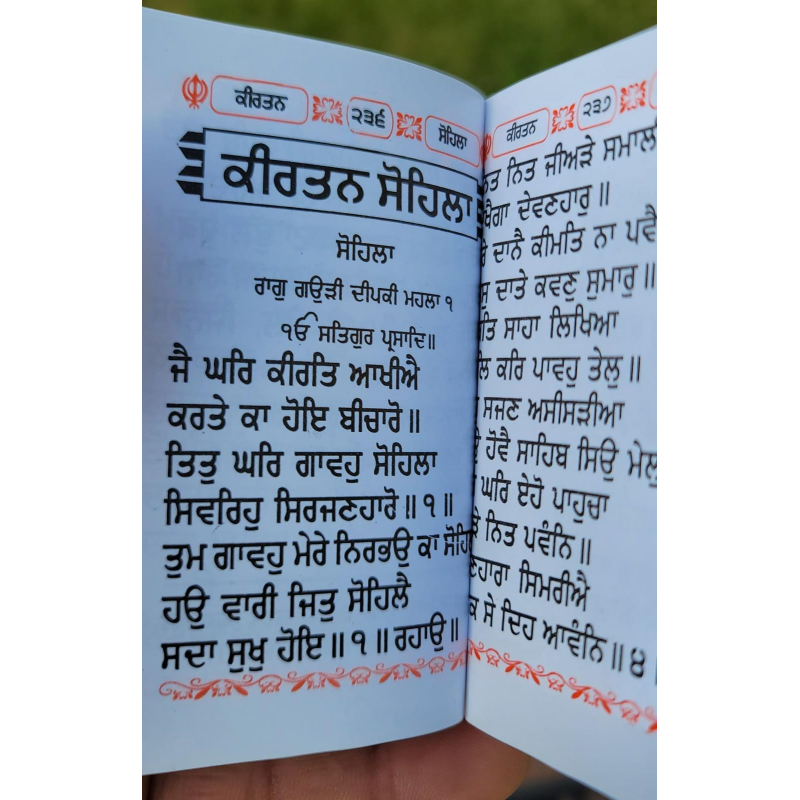 ਕੀਰਤਨ ੨੩੬ ਸੋਹਿਲਾ
ਕੀਰਤਨ ਸੋਹਿਲਾ
ਸੋਹਿਲਾ
ਰਾਗੁ ਗਉੜੀ ਦੀਪਕੀ ਮਹਲਾ ੧
ੴ ਸਤਿਗੁਰ ਪ੍ਰਸਾਦਿ॥
ਜੈ ਘਰਿ ਕੀਰਤਿ ਆਖੀਐ
ਕਰਤੇ ਕਾ ਹੋਇ ਬੀਚਾਰੋ॥
ਤਿਤੁ ਘਰਿ ਗਾਵਹੁ ਸੋਹਿਲਾ
ਸਿਵਰਿਹੁ ਸਿਰਜਣਹਾਰੋ॥੧॥
ਤੁਮ ਗਾਵਹੁ ਮੇਰੇ ਨਿਰਭਉ ਕਾ ਸੋਹਿ
ਹਉ ਵਾਰੀ ਜਿਤੁ ਸੋਹਿਲੈ
ਸਦਾ ਸੁਖੁ ਹੋਇ॥੧॥ ਰਹਾਉ॥
ਕੀਰਤਨ ੨੩੭
ਨਿਤ ਜੀਅੜੇ ਸਮਾਲੀ
ਦੇਵਣਹਾਰੁ॥
ਦਾਨੈ ਕੀਮਤਿ ਨਾ ਪਵੈ
ਦਾਤੇ ਕਵਣੁ ਸੁਮਾਰੁ॥
ਸਾਹਾ ਲਿਖਿਆ
ਕਰਿ ਪਾਵਹੁ ਤੇਲੁ॥
ਸਜਣ ਅਸੀਸੜੀਆ
ਹੋਵੈ ਸਾਹਿਬ ਸਿਉ ਮੇਲੁ
ਘਰਿ ਏਹੋ ਪਾਹੁਚਾ
ਨਿਤ ਪਵੰਨਿ॥
ਸਿਮਰੀਐ
ਸੇ ਦਿਹ ਆਵੰਨਿ॥੪